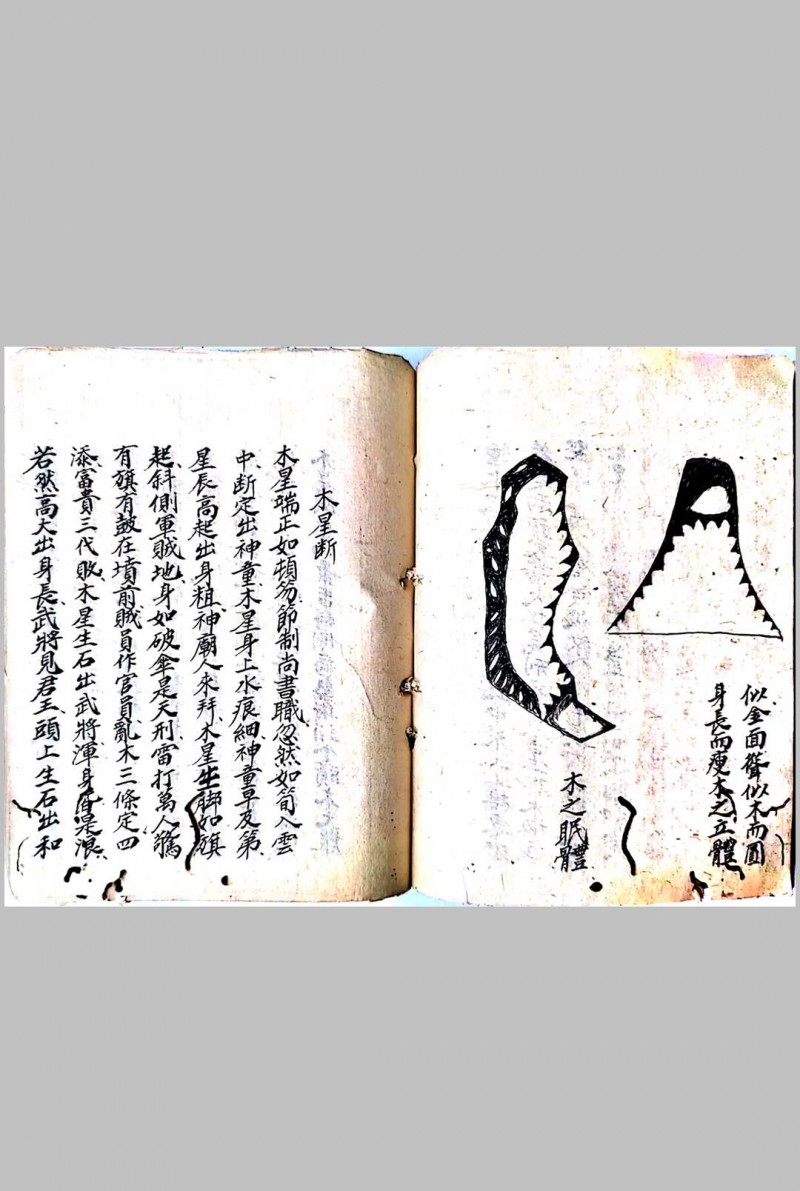 似金面聳似木而圓
身長而瘦木之立體
木之眠體
木星断
木星端正如頓笏、節制尚書職、忽然如筍入雲
中、断定出神童、木星身上水痕細、神童早及第、
星辰高起出身粗、神廟人來拜、木星生脚如旗
起、斜側軍賊地、身如破傘是天刑、雷打萬人驚、
有旗有鼓在墳前、賊員作官員、亂木三條定四
添、富貴三代敗、木星生石出武將、渾身是浪、
若然高大出身長、武將見君王、頭上生石出和